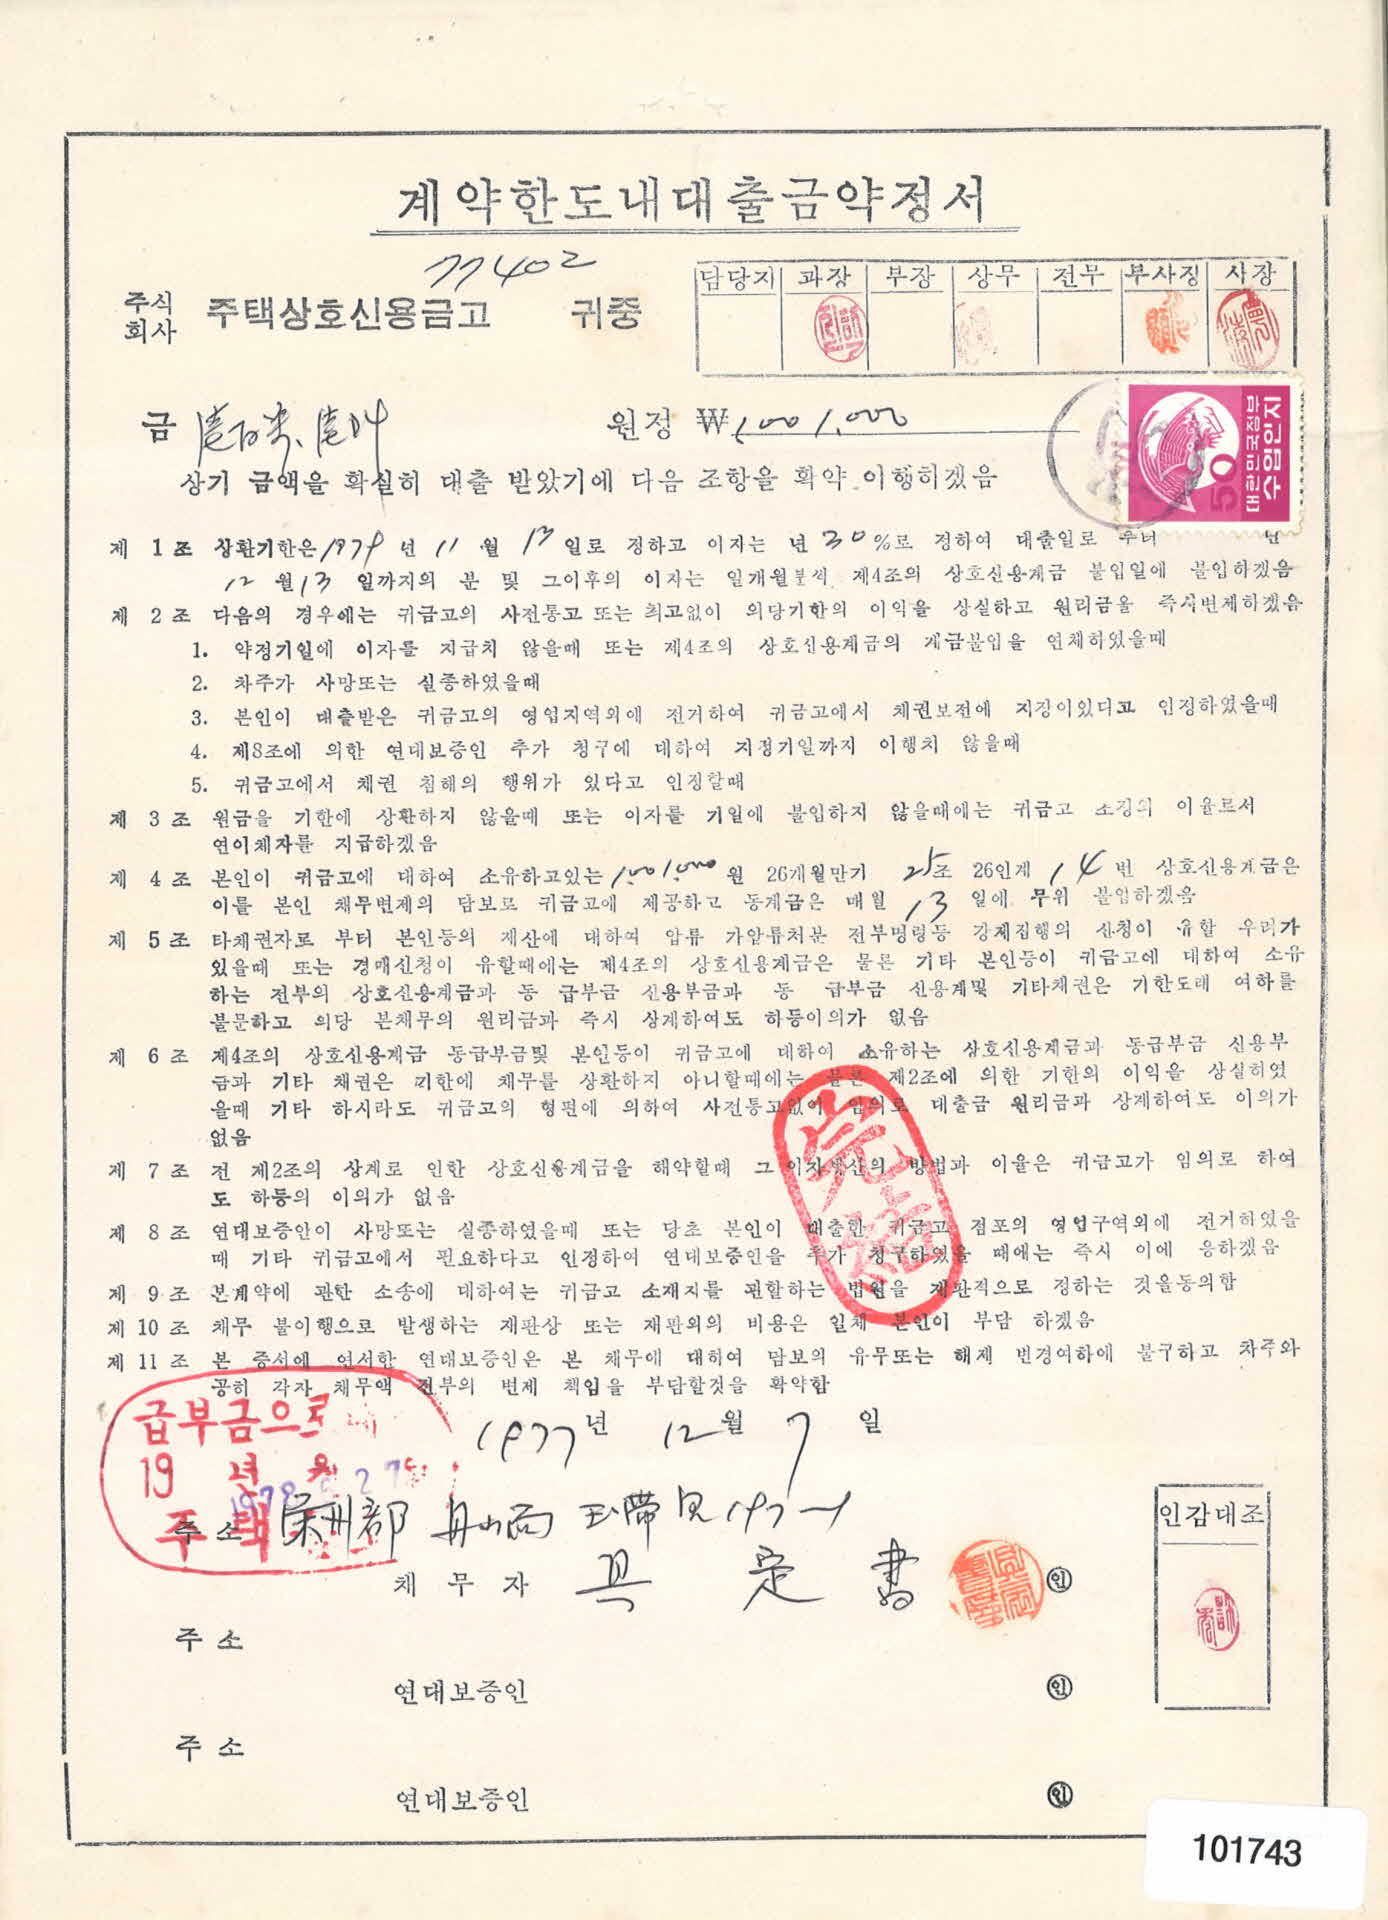 계약한도내대출금약정서
77402
주식회사 주택상호신용금고 귀중
담당자 과장 부장 상무 전무 부사장 사장
금 원정 ₩1,001,000
상기 금액을 확실히 대출 받았기에 다음 조항을 확약 이행하겠음
50 대한민국정부 수입인지
제 1 조 상환기한은 1979 년 11 월 13 일로 정하고 이자는 년 30 %로 정하여 대출일로 부터 년
12 월 13 일까지의 분 및 그이후의 이자는 일개월분씩 제4조의 상호신용계금 불입일에 불입하겠음
제 2 조 다음의 경우에는 귀금고의 사전통고 또는 최고없이 의당기한의 이익을 상실하고 원리금을 즉시변제하겠음
1. 약정기일에 이자를 지급치 않을때 또는 제4조의 상호신용계금의 계금불입을 연체하였을때
2. 차주가 사망또는 실종하였을때
3. 본인이 대출받은 귀금고의 영업지역외에 전거하여 귀금고에서 채권보전에 지장이있다고 인정하였을때
4. 제8조에 의한 연대보증인 추가 청구에 대하여 지정기일까지 이행치 않을때
5. 귀금고에서 채권 침해의 행위가 있다고 인정할때
제 3 조 원금을 기한에 상환하지 않을때 또는 이자를 기일에 불입하지 않을때에는 귀금고 소정의 이율로서
연이체자를 지급하겠음
제 4 조 본인이 귀금고에 대하여 소유하고있는 1,001,000 원 26개월만기 25조 26인계 14 번 상호신용계금은
이를 본인 채무변제의 담보로 귀금고에 제공하고 동계금은 매월 13 일에 무위 불입하겠음
제 5 조 타채권자로 부터 본인등의 재산에 대하여 압류 가압류처분 전부명령등 강제집행의 신청이 유할 우려가
있을때 또는 경매신청이 유할때에는 제4조의 상호신용계금은 물론 기타 본인등이 귀금고에 대하여 소유
하는 전부의 상호신용계금과 동 급부금 신용부금과 동 급부금 신용계및 기타채권은 기한도래 여하를
불문하고 의당 본채무의 원리금과 즉시 상계하여도 하등이의가 없음
제 6 조 제4조의 상호신용계금 동급부금및 본인등이 귀금고에 대하여 소유하는 상호신용계금과 동급부금 신용부
금과 기타 채권은 기한에 채무를 상환하지 아니할때에는 물론 제2조에 의한 기한의 이익을 상실하였
을때 기타 하시라도 귀금고의 형편에 의하여 사전통고없이 임의로 대출금 원리금과 상계하여도 이의가
없음
제 7 조 전 제2조의 상계로 인한 상호신용계금을 해약할때 그 이자계산의 방법과 이율은 귀금고가 임의로 하여
도 하등의 이의가 없음
제 8 조 연대보증안이 사망또는 실종하였을때 또는 당초 본인이 대출한 귀금고 점포의 영업구역외에 전거하였을
때 기타 귀금고에서 필요하다고 인정하여 연대보증인을 추가 청구하였을 때에는 즉시 이에 응하겠음
제 9 조 본계약에 관한 소송에 대하여는 귀금고 소재지를 관할하는 법원을 재판적으로 정하는 것을동의함
제 10 조 채무 불이행으로 발생하는 재판상 또는 재판외의 비용은 일체 본인이 부담 하겠음
제 11 조 본 증서에 연서한 연대보증인은 본 채무에 대하여 담보의 유무또는 해제 변경여하에 불구하고 차주와
공히 각자 채무액 전부의 변제 책임을 부담할것을 확약함
完結
급부금으로
19 년 월
주택
1977 년 12 월 7 일
주소
채 무 자
㊞
주 소
연대보증인 ㊞
주 소
연대보증인 ㊞
인감대조
101743